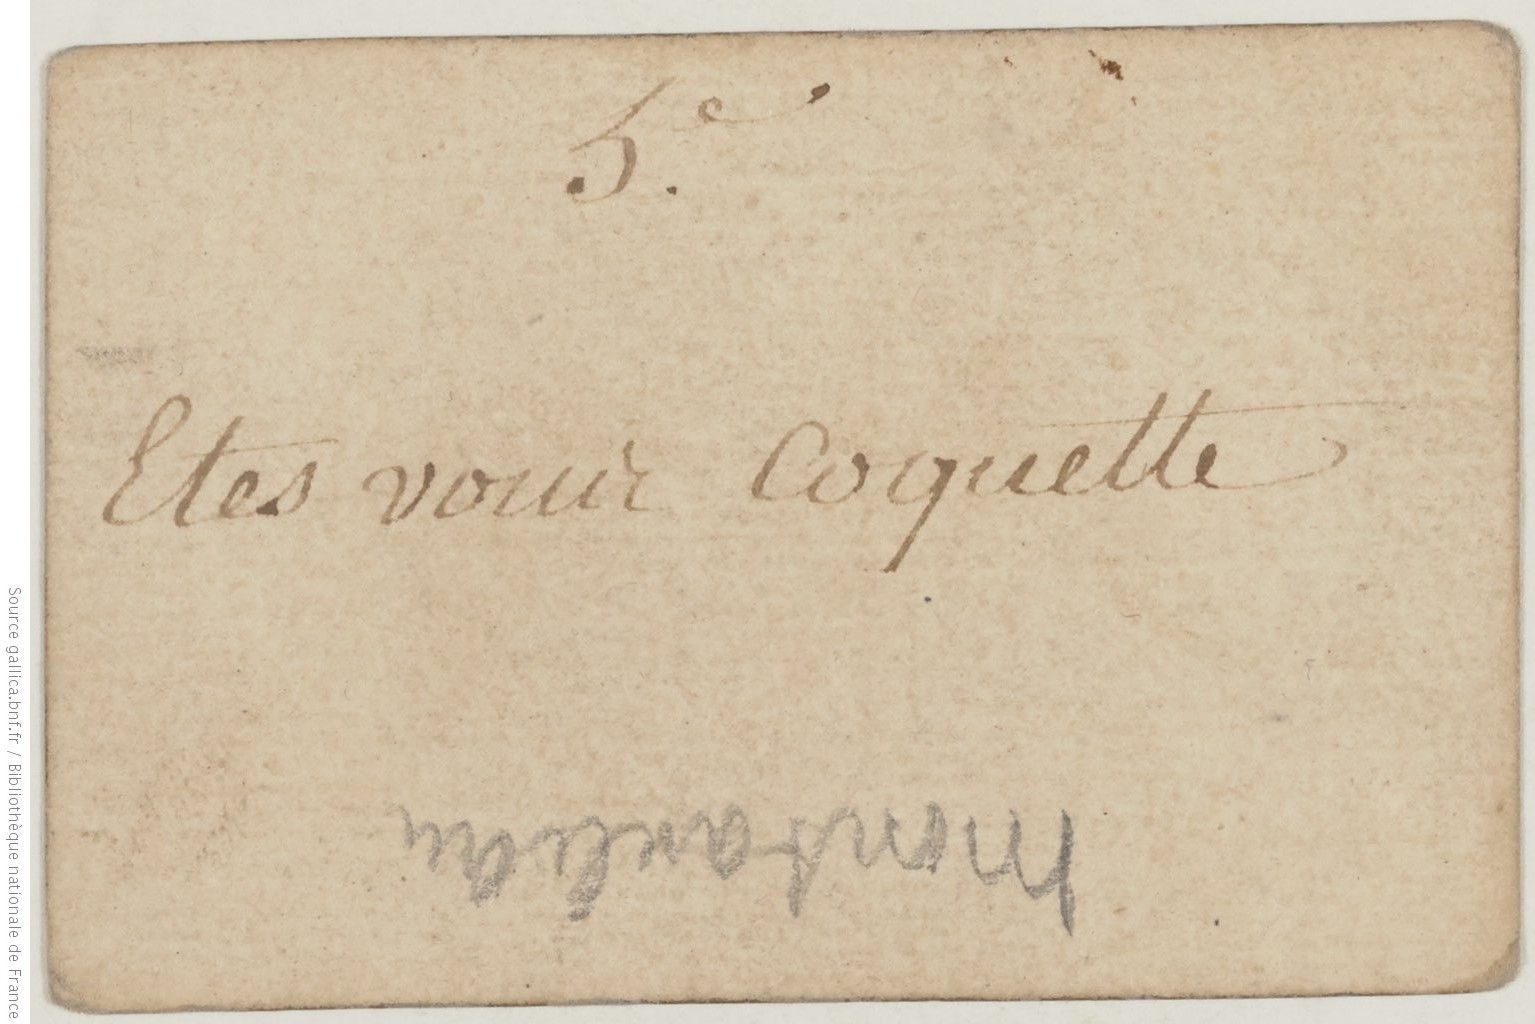 5.e
Etes vous Coquette
Source gallica.bnf.fr / Bibliothèque nationale de France